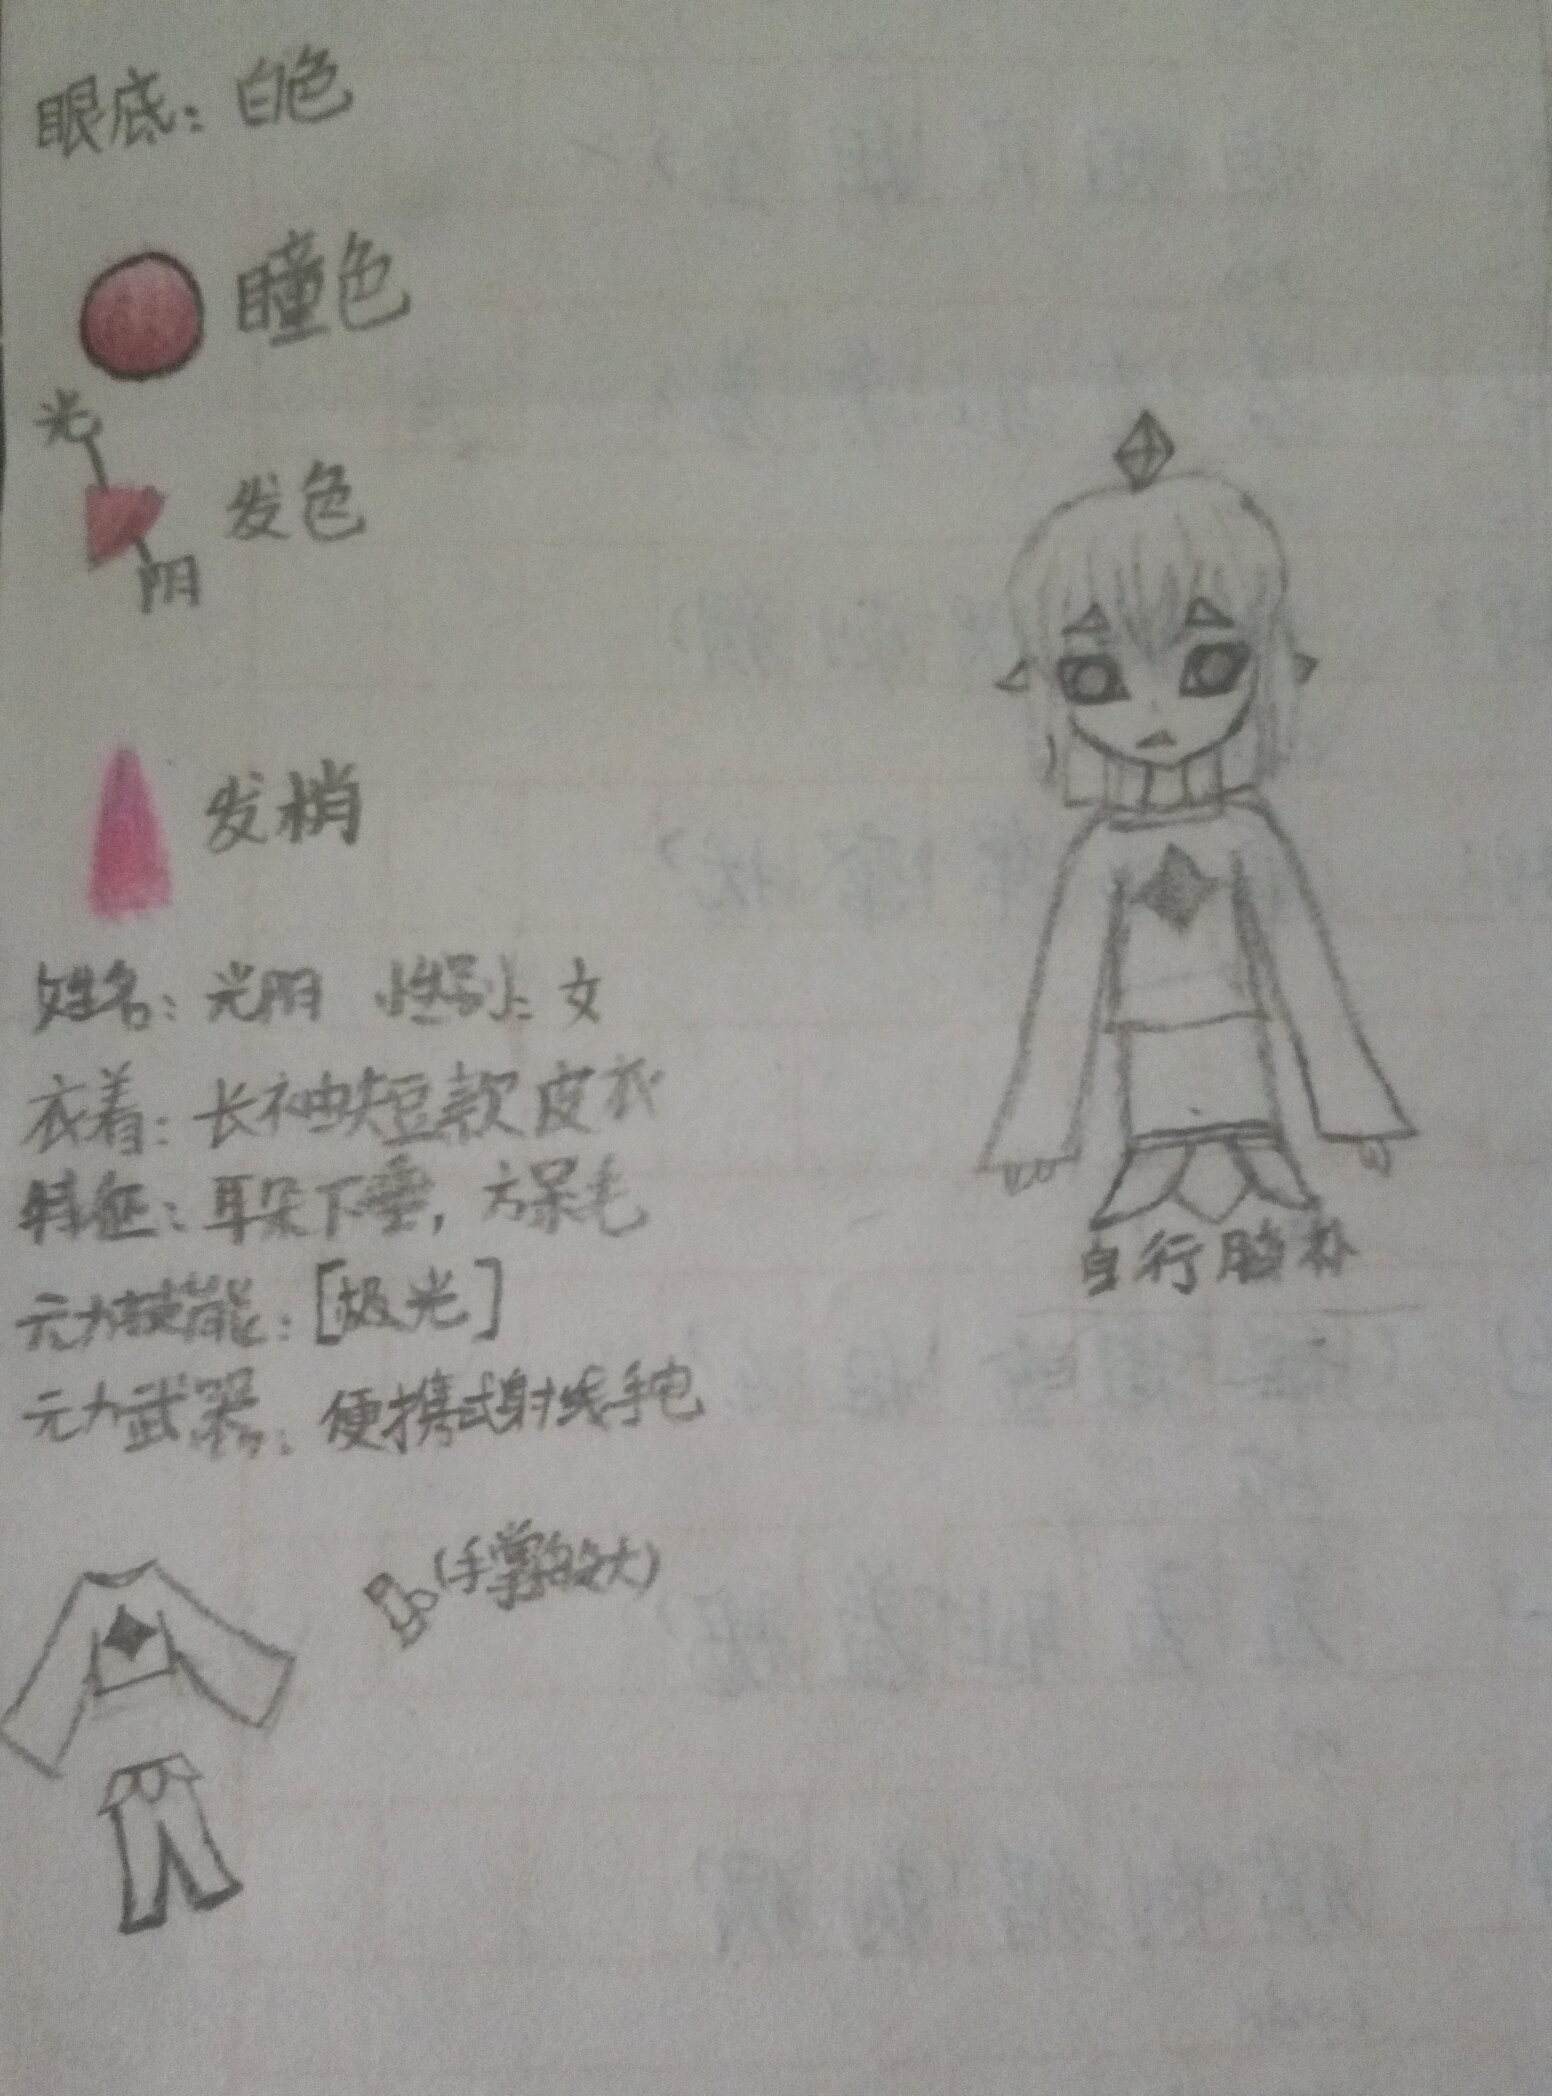 眼底：白色
瞳色
光
发色
阴
发梢
姓名：光阴 性别：女
衣着：长袖短款皮衣
特征：耳朵下垂，方呆毛
元力技能：[极光]
元力武器：便携式射线手电
自行脑补
(手掌放大)